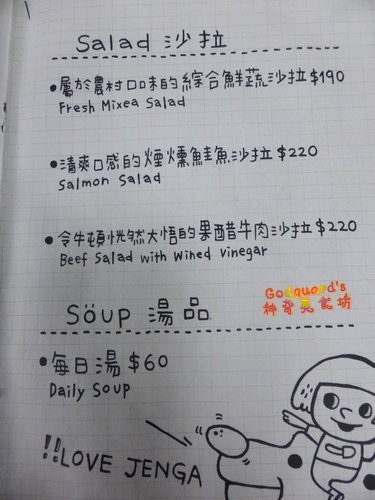 Salad 沙拉
●屬於農村口味的綜合鮮蔬沙拉$190
Fresh Mixea Salad
●清爽口感的煙燻鮭魚沙拉$220
Salmon Salad
●令牛頓恍然大悟的果醋牛肉沙拉$220
Beef Salad with Wined vinegar
Godquard's
神奇覓食坊
Söup 湯品
●每日湯$60
Daily Soup
!!LOVE JENGA